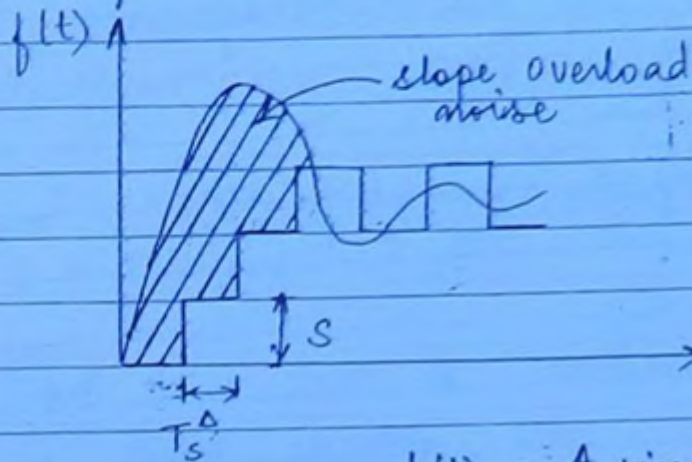 f(t)
slope overload
noise
S
Ts